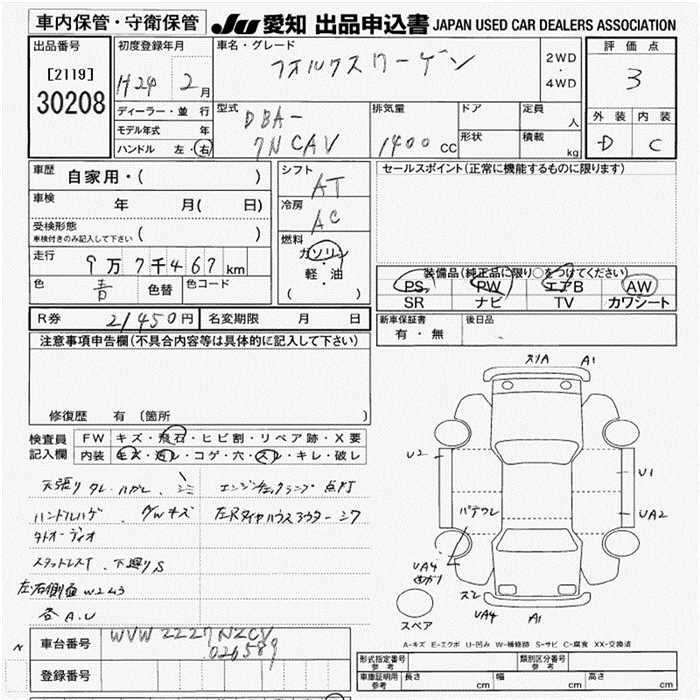 車内保管・守衛保管
JU 愛知 出品申込書 JAPAN USED CAR DEALERS ASSOCIATION
出品番号
[2119]
30208
初度登録年月
H24 2月
ディーラー・並 行
モデル年式 年
ハンドル 左・右
車名・グレード
フォルクスワーゲン
2WD
・
4WD
型式
DBA-
7NCAV
排気量
1400 CC
ドア
形状
定員
人
積載
kg
評 価 点
3
外 装 内 装
D C
車歴
自家用・( )
車検
年 月( 日)
受検形態
車検付きのみ記入して下さい ( )
走行
9万7千467km
色
青
色替
色コード
シフト
AT
冷房
AC
燃料
ガソリン
・
軽・油
( )
セールスポイント(正常に機能するものに限ります)
装備品(純正品に限り○をつけてください)
PS PW エアB AW
SR ナビ TV カワシート
R券 21450円 名変期限 月 日
新車保証書
有・無
後日品
注意事項申告欄(不具合内容等は具体的に記入して下さい)
修復歴 有 (箇所 )
検査員
記入欄
FW キズ・飛石・ヒビ割・リペア跡・X要
内装 キズ・汚レ・コゲ・穴・スレ・キレ・破レ
天張り タレ・ハガレ、シミ
エンジンチェックランプ 点灯
ハンドルハゲ、
左Rタイヤハウスアウター シワ
社外オーディオ
スタッドレスT、下廻りS
左右側面 W2 W3
各A.U
スリA A1
U2
U1
UA2
バテワレ
UA4
スレ
UA4
A1
スペア
A-キズ E-エクボ U-凹み W-補修跡 S-サビ C-腐食 XX-交換済
N
車台番号
WVWZZZ7NZCV
020589
登録番号
形式指定番号
参考
類別区分番号
参考
車庫証明用
参考
長さ cm 幅 cm 高さ cm